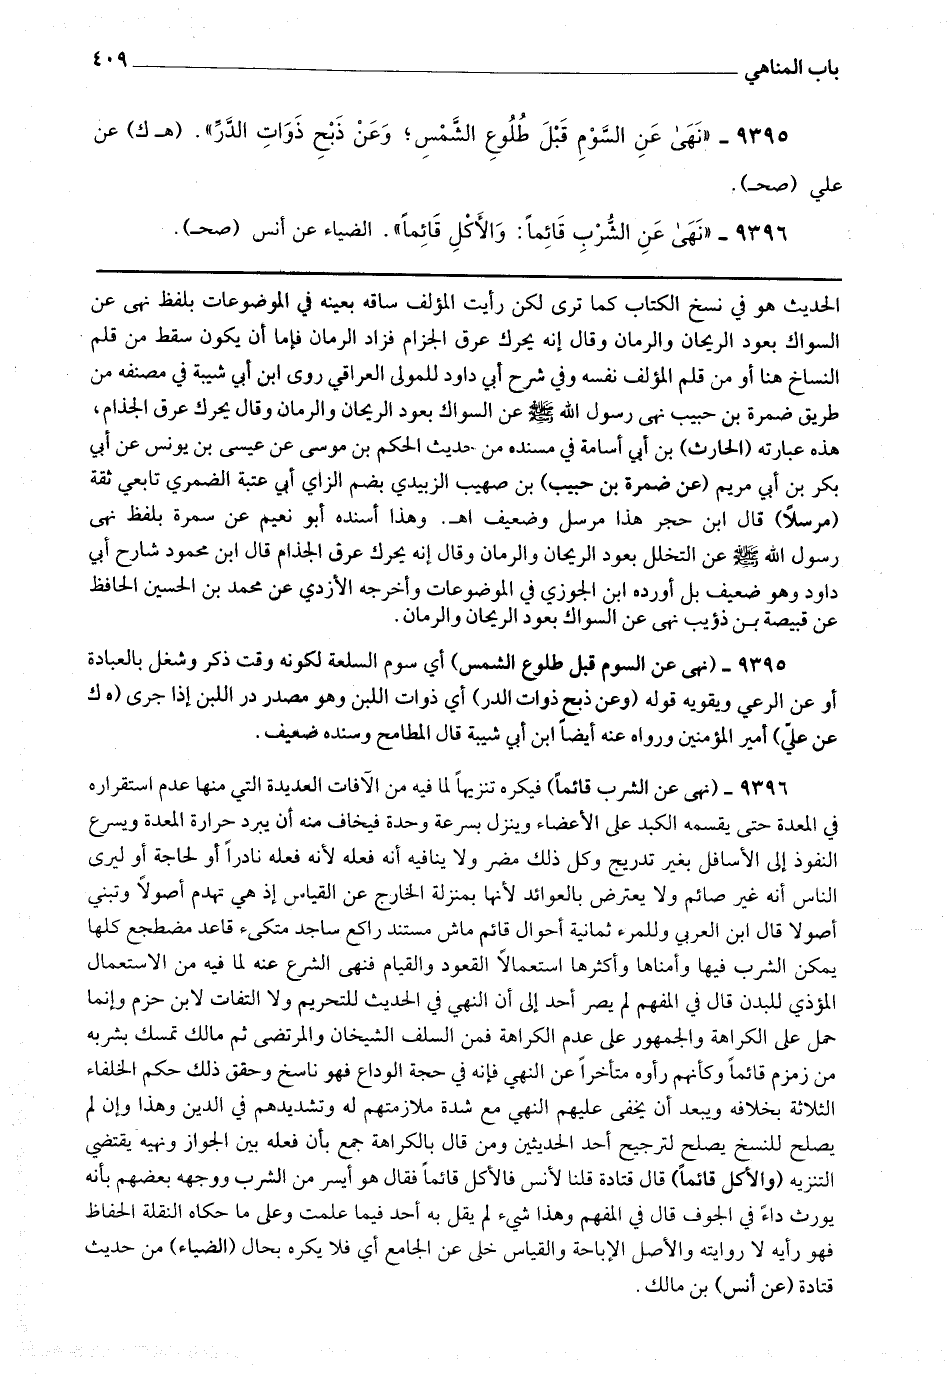 باب المناهي ٤٠٩
٩٣٩٥ ـ «نَهَىٰ عَنِ السَّوْمِ قَبْلَ طُلُوعِ الشَّمْسِ؛ وَعَنْ ذَبْحِ ذَوَاتِ الدَّرِّ». (هـ ك) عن
علي (صحـ).
٩٣٩٦ ـ «نَهَىٰ عَنِ الشُّرْبِ قَائِماً: وَالأَكْلِ قَائِماً». الضياء عن أنس (صحـ).
الحديث هو في نسخ الكتاب كما ترى لكن رأيت المؤلف ساقه بعينه في الموضوعات بلفظ نهى عن
السواك بعود الريحان والرمان وقال إنه يحرك عرق الجزام فزاد الرمان فإما أن يكون سقط من قلم
النساخ هنا أو من قلم المؤلف نفسه وفي شرح أبي داود للمولى العراقي روى ابن أبي شيبة في مصنفه من
طريق ضمرة بن حبيب نهى رسول الله ﷺ عن السواك بعود الريحان والرمان وقال يحرك عرق الجذام،
هذه عبارته (الحارث) بن أبي أسامة في مسنده من حديث الحكم بن موسى عن عيسى بن يونس عن أبي
بكر بن أبي مريم (عن ضمرة بن حبيب) بن صهيب الزبيدي بضم الزاي أبي عتبة الضمري تابعي ثقة
(مرسلاً) قال ابن حجر هذا مرسل وضعيف اهـ. وهذا أسنده أبو نعيم عن سمرة بلفظ نهى
رسول الله ﷺ عن التخلل بعود الريحان والرمان وقال إنه يحرك عرق الجذام قال ابن محمود شارح أبي
داود وهو ضعيف بل أورده ابن الجوزي في الموضوعات وأخرجه الأزدي عن محمد بن الحسين الحافظ
عن قبيصة بـن ذؤيب نهى عن السواك بعود الريحان والرمان.
٩٣٩٥ ـ (نهى عن السوم قبل طلوع الشمس) أي سوم السلعة لكونه وقت ذكر وشغل بالعبادة
أو عن الرعي ويقويه قوله (وعن ذبح ذوات الدر) أي ذوات اللبن وهو مصدر در اللبن إذا جرى (ه ك
عن عليّ) أمير المؤمنين ورواه عنه أيضاً ابن أبي شيبة قال المطامح وسنده ضعيف.
٩٣٩٦ ـ (نهى عن الشرب قائماً) فيكره تنزيهاً لما فيه من الآفات العديدة التي منها عدم استقراره
في المعدة حتى يقسمه الكبد على الأعضاء وينزل بسرعة وحدة فيخاف منه أن يبرد حرارة المعدة ويسرع
النفوذ إلى الأسافل بغير تدريج وكل ذلك مضر ولا ينافيه أنه فعله لأنه فعله نادراً أو لحاجة أو ليرى
الناس أنه غير صائم ولا يعترض بالعوائد لأنها بمنزلة الخارج عن القياس إذ هي تهدم أصولاً وتبني
أصولا قال ابن العربي وللمرء ثمانية أحوال قائم ماش مستند راكع ساجد متكىء قاعد مضطجع كلها
يمكن الشرب فيها وأمناها وأكثرها استعمالاً القعود والقيام فنهى الشرع عنه لما فيه من الاستعمال
المؤذي للبدن قال في المفهم لم يصر أحد إلى أن النهي في الحديث للتحريم ولا التفات لابن حزم وإنما
حمل على الكراهة والجمهور على عدم الكراهة فمن السلف الشيخان والمرتضى ثم مالك تمسك بشربه
من زمزم قائماً وكأنهم رأوه متأخراً عن النهي فإنه في حجة الوداع فهو ناسخ وحقق ذلك حكم الخلفاء
الثلاثة بخلافه ويبعد أن يخفى عليهم النهي مع شدة ملازمتهم له وتشديدهم في الدين وهذا وإن لم
يصلح للنسخ يصلح لترجيح أحد الحديثين ومن قال بالكراهة جمع بأن فعله بين الجواز ونهيه يقتضي
التنزيه (والأكل قائماً) قال قتادة قلنا لأنس فالأكل قائماً فقال هو أيسر من الشرب ووجهه بعضهم بأنه
يورث داءً في الجوف قال في المفهم وهذا شيء لم يقل به أحد فيما علمت وعلى ما حكاه النقلة الحفاظ
فهو رأيه لا روايته والأصل الإباحة والقياس خلى عن الجامع أي فلا يكره بحال (الضياء) من حديث
قتادة (عن أنس) بن مالك.